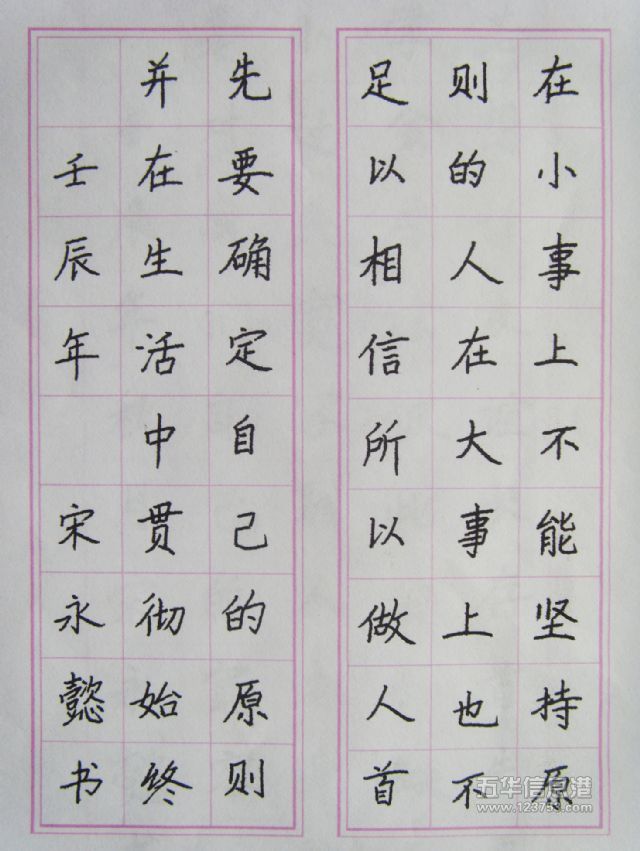 在小事上不能坚持原
则的人在大事上也不
足以相信所以做人首
先要确定自己的原则
并在生活中贯彻始终
壬辰年 宋永懿书
五华信息港
www.123753.com